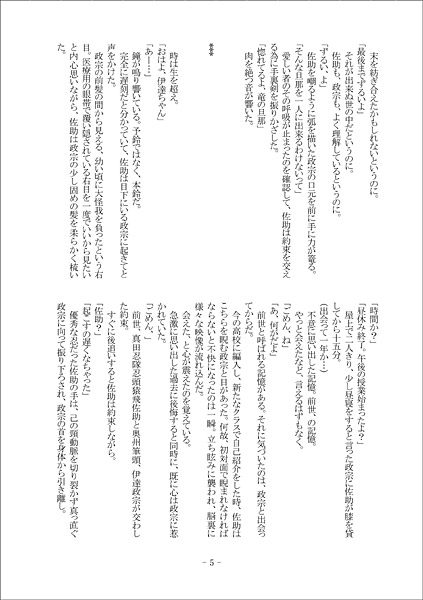 末を紡ぎ合えたかもしれないというのに。
「最後までずるいよ」
それが出来ぬ世の中だというのに。
佐助も、政宗も、よく理解しているというのに。
「ずるい、よ」
佐助を嘲るように弧を描いた政宗の口元を前に手に力が籠る。
「そんな旦那を一人に出来るわけないって」
愛しい者のその呼吸が止まったのを確認して、佐助は約束を交え
る為に手裏剣を振りかざした。
「惚れてるよ、竜の旦那」
肉を絶つ音が響いた。
***
時は生を超え。
「おはよ、伊達ちゃん」
「あー…」
鐘が鳴り響いている。予鈴ではなく、本鈴だ。
完全に遅刻だと分かっていて、佐助は目下にいる政宗に起きてと
声をかけた。
政宗の前髪の間から見える、幼い頃に大怪我を負ったという右
目。医療用の眼帯で覆い隠されている右目を一度でいいから見たい
と内心思いながら、佐助は政宗の少し固めの髪を柔らかく梳い
た。
「時間か？」
「昼休み終了。午後の授業始まったよ？」
屋上で二人きり、少し昼寝をすると言った政宗に佐助が膝を貸
してから十五分。
（出会って一年か…）
不意に思い出した記憶。前世、の記憶。
やっと会えたなど、言えるはずもなく。
「ごめん、ね」
「あ、何がだよ」
前世と呼ばれる記憶がある。それに気づいたのは、政宗と出会っ
てからだ。
今の高校に編入し、新たなクラスで自己紹介をした時、佐助は
こちらを睨む政宗と目があった。何故、初対面で睨まれなければ
ならないと不快になったのは一瞬。立ち眩みに襲われ、脳裏に
様々な映像が流れ込んだ。
会えた、と心が震えたのを覚えている。
急激に思い出した過去に後悔すると同時に、既に心は政宗に惹
かれていた。
「ごめん、」
前世、真田忍隊忍頭猿飛佐助と奥州筆頭、伊達政宗が交わし
た約束。
すぐに後追いすると佐助は約束しながら。
「佐助？」
「起こすの遅くなちゃった」
優秀な忍だった佐助の手は、己の頸動脈を切り裂かず真っ直ぐ
政宗に向って振り下ろされ、政宗の首を身体から引き離し。
- 5 -